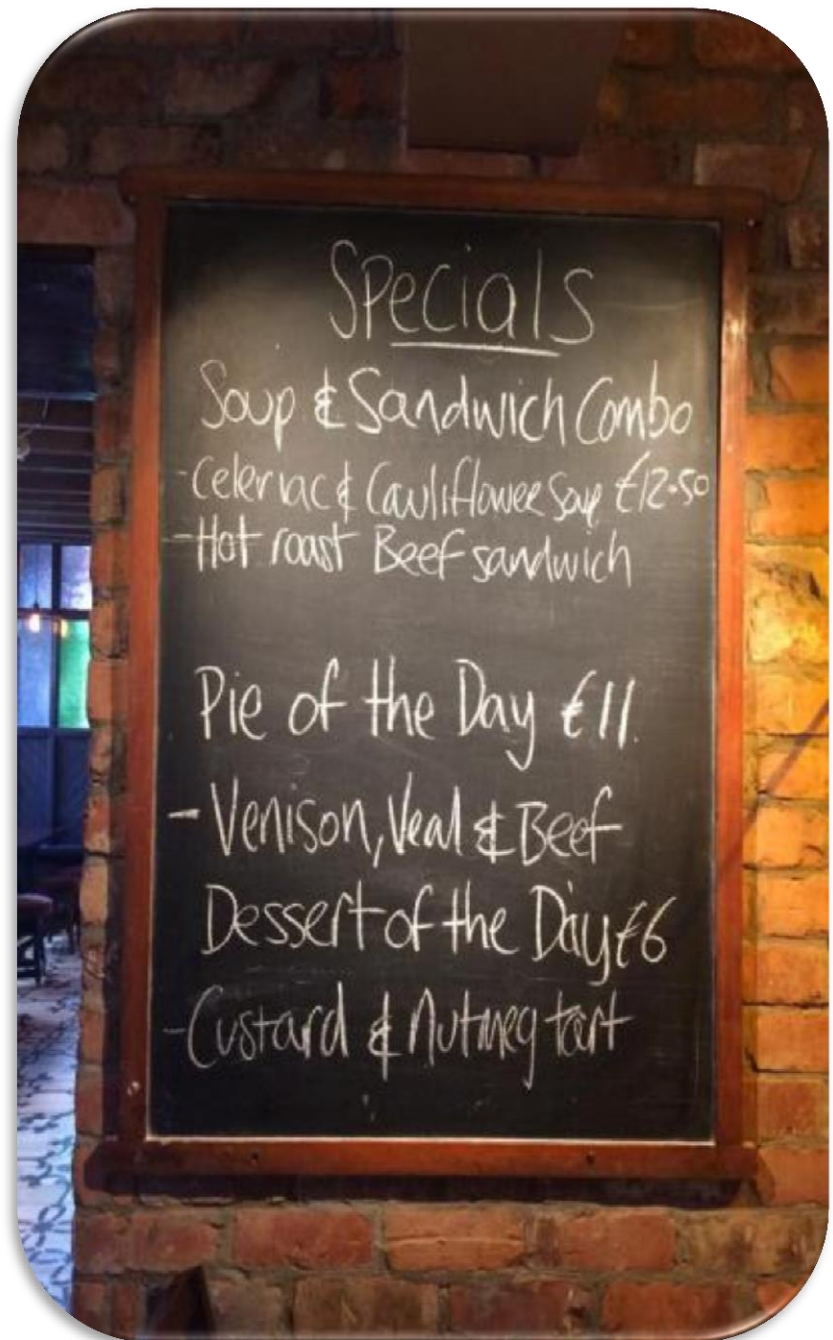 Specials
Soup & Sandwich Combo
- Celeriac & Cauliflower Soup €12.50
- Hot roast Beef sandwich
Pie of the Day €11.
- Venison, Veal & Beef
Dessert of the Day €6
- Custard & Nutmeg tart